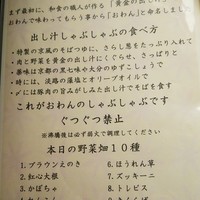 まず最初に、和食の職人が作る「黄金の出し汁」
おわんで味わってもらう事から「おわん」と命名しまし
出し汁しゃぶしゃぶの食べ方
・特製の京風のそばつゆに、さらし葱をたっぷり入れて
・肉と野菜を黄金の出し汁にくぐらせ、さっぱりと
・薬味は京都の黒七味や大分のゆずこしょうで
・時には、淡路の藻塩とオリーブオイルで
・〆には豚肉の旨みがしみ出した出し汁でぜひ
これがおわんのしゃぶしゃぶです
ぐつぐつ禁止
※沸騰後は必ず弱火で調理してください
本日の野菜畑10種
1. ブラウンえのき
2. 紅心大根
3. かぼちゃ
6. ほうれん草
7. ズッキーニ
8. トレビス